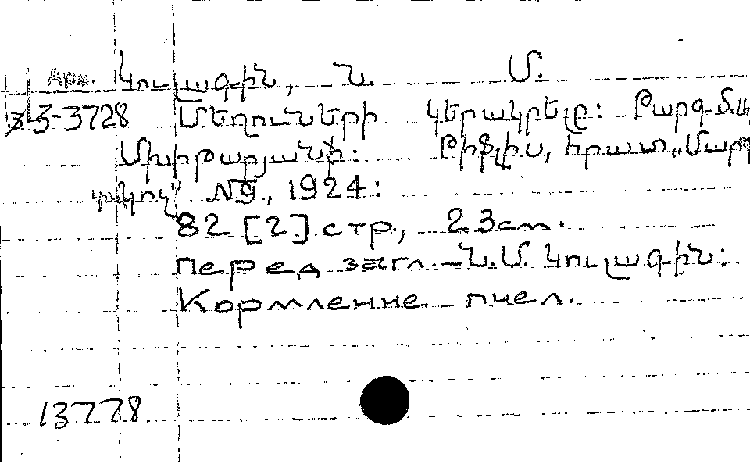 Арм. Կուլագին, Ն. Մ.
33-3728 Մեղուների կերակրելը: Թարգմ.
Մխիթարյանի: Թիֆլիս, հրատ. „Մարտ
կոչ" №9, 1924:
82 [2] стр., 23 см.
Перед загл. Ն. Մ. Կուլագին:
Кормление пчел.
13778